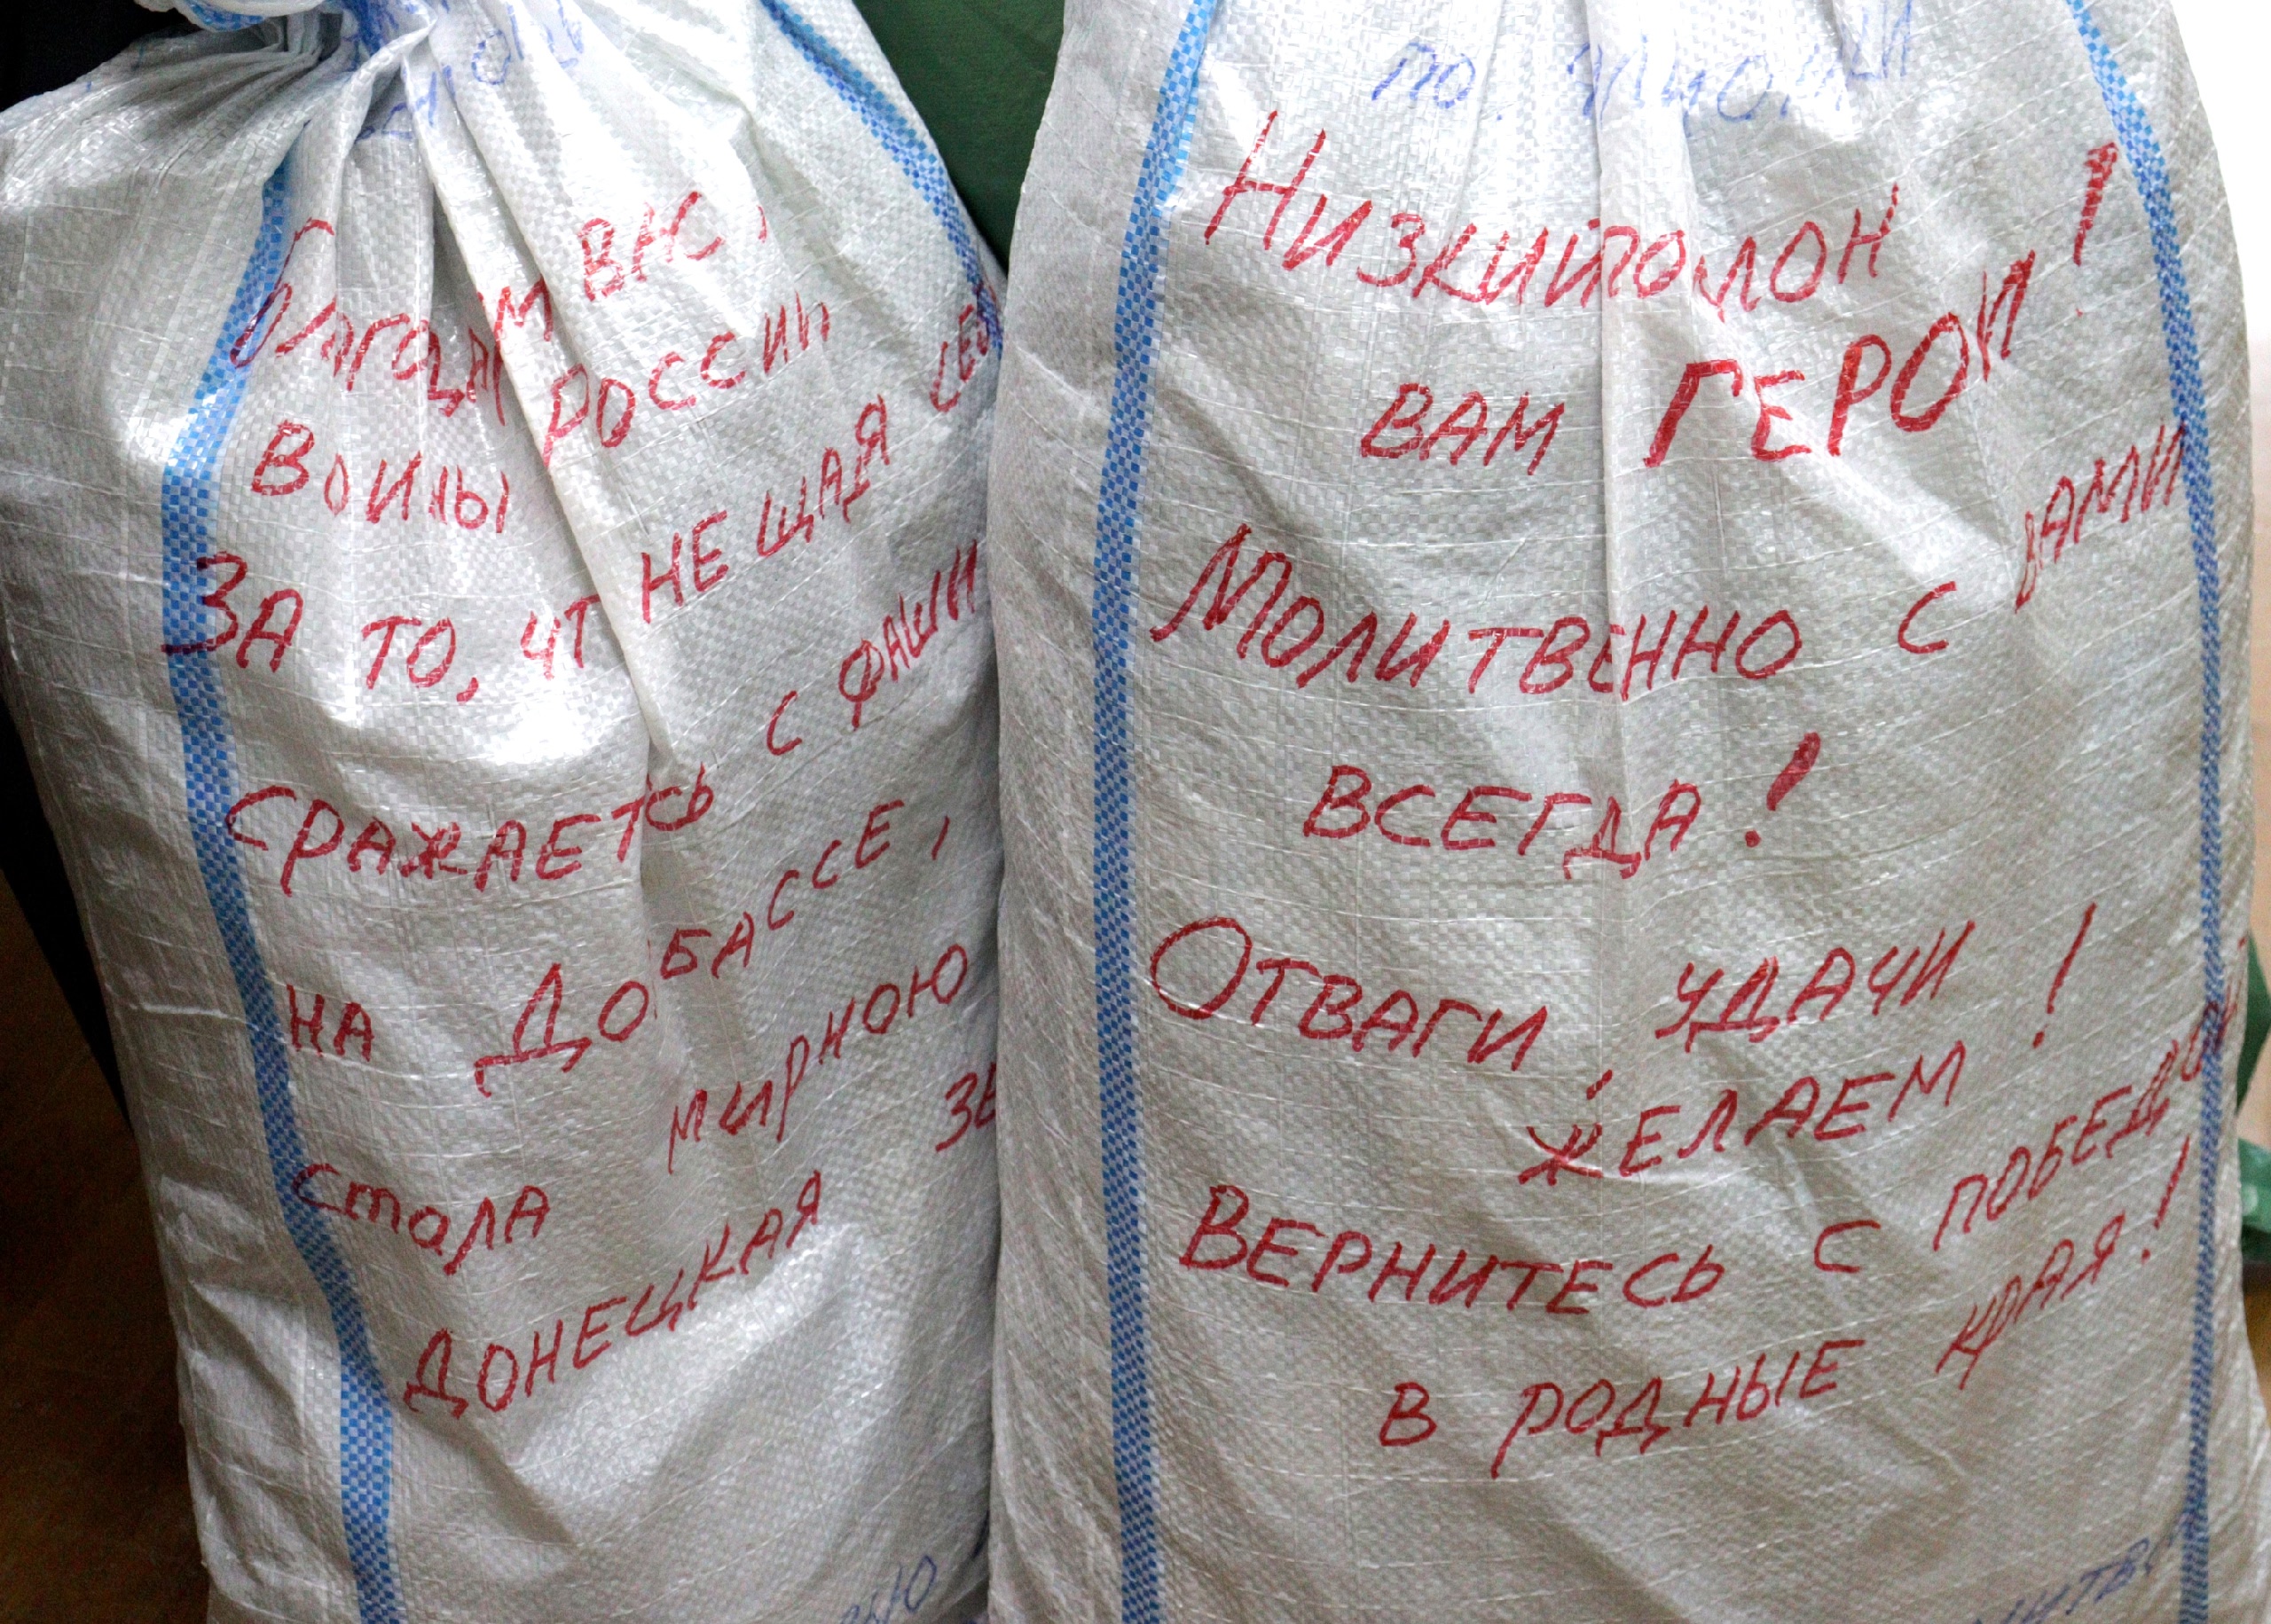 ВАС,
ВОИНЫ РОССИИ
ЗА ТО, ЧТ НЕ ЩАДЯ
СРАЖАЕТЕСЬ С ФАШИ
НА ДО БАССЕ,
СТАЛА МИРНОЮ
ДОНЕЦКАЯ ЗЕ
ПО
НИЗКИЙ ПОКЛОН
ВАМ ГЕРОИ!
МОЛИТВЕННО С ВАМИ
ВСЕГДА!
ОТВАГИ, УДАЧИ
ЖЕЛАЕМ!
ВЕРНИТЕСЬ С ПОБЕДОЙ
В РОДНЫЕ КРАЯ!